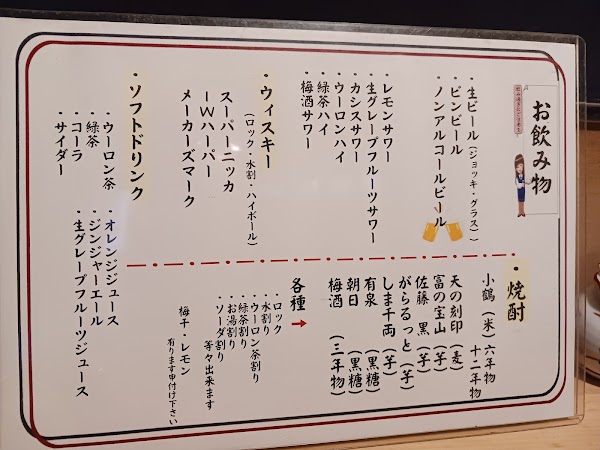 お飲み物
・生ビール(ジョッキ・グラス)
・ビンビール
・ノンアルコールビール
・レモンサワー
・生グレープフルーツサワー
・カシスサワー
・ウーロンハイ
・緑茶ハイ
・梅酒サワー
・ウィスキー
(ロック・水割・ハイボール)
スーパーニッカ
IWハーパー
メーカーズマーク
・ソフトドリンク
・ウーロン茶
・緑茶
・コーラ
・サイダー
・オレンジジュース
・ジンジャーエール
・生グレープフルーツジュース
・焼酎
小鶴(米)六年物
十二年物
天の刻印(麦)
富の宝山(芋)
佐藤 黒(芋)
がらるっと(芋)
しま千両(芋)
有泉(黒糖)
朝日(黒糖)
梅酒(三年物)
各種→
・ロック
・水割り
・ウーロン茶割り
・緑茶割り
・お湯割り
・ソーダ割り
等々出来ます
梅干・レモン
有ります申付け下さい